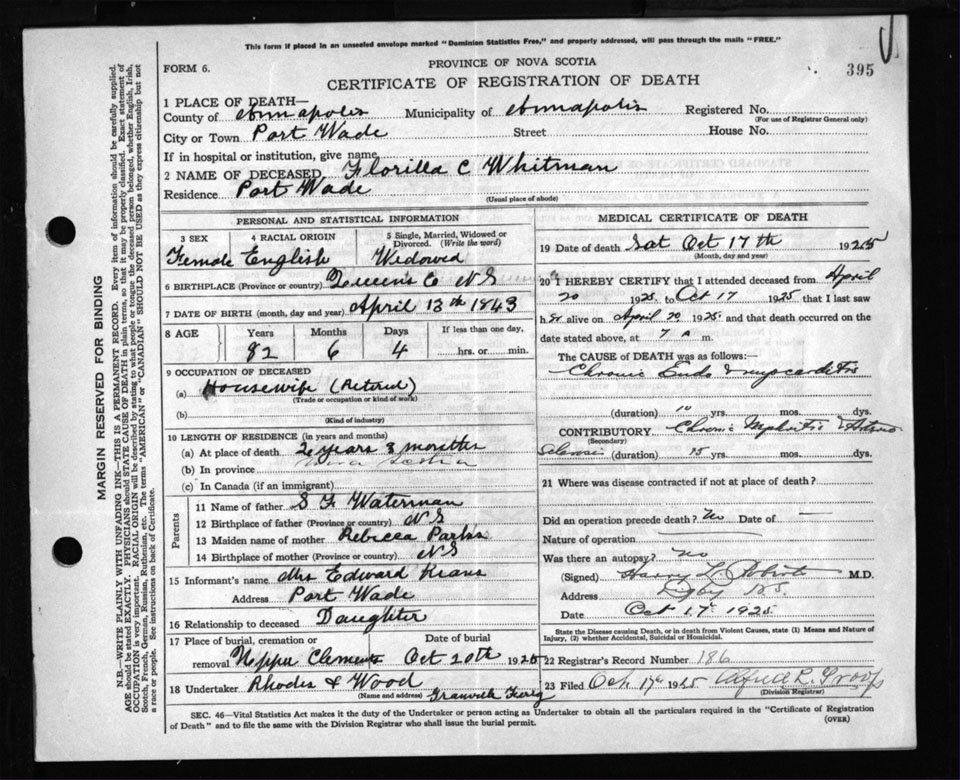 This form if placed in an unsealed envelope marked "Dominion Statistics Free," and properly addressed, will pass through the mails "FREE."
FORM 6.
PROVINCE OF NOVA SCOTIA
395
CERTIFICATE OF REGISTRATION OF DEATH
1 PLACE OF DEATH—
County of Annapolis Municipality of Annapolis Registered No.
(For use of Registrar General only)
City or Town Port Wade Street House No.
If in hospital or institution, give name
2 NAME OF DECEASED Florilla C Whitman
Residence Port Wade
(Usual place of abode)
PERSONAL AND STATISTICAL INFORMATION
3 SEX 4 RACIAL ORIGIN 5 Single, Married, Widowed or Divorced. (Write the word)
Female English Widowed
6 BIRTHPLACE (Province or country) Queens Co NS
7 DATE OF BIRTH (month, day and year) April 13th 1843
8 AGE Years Months Days If less than one day,
82 6 4 hrs. or min.
9 OCCUPATION OF DECEASED
(a) Housewife (Retired)
(Trade or occupation or kind of work)
(b)
(Kind of industry)
10 LENGTH OF RESIDENCE (in years and months)
(a) At place of death 2 years 3 months
(b) In province Nova Scotia
(c) In Canada (if an immigrant)
Parents
11 Name of father S F Waterman
12 Birthplace of father (Province or country) NS
13 Maiden name of mother Rebecca Parks
14 Birthplace of mother (Province or country) NS
15 Informant's name Mrs Edward Keans
Address Port Wade
16 Relationship to deceased Daughter
17 Place of burial, cremation or removal Date of burial
Clements Oct 20th 1925
18 Undertaker Rhodes & Wood
(Name and address)
MEDICAL CERTIFICATE OF DEATH
19 Date of death Sat Oct 17th 1925
(Month, day and year)
20 I HEREBY CERTIFY that I attended deceased from April
20 1925 to Oct 17 1925 that I last saw
her alive on April 20 1925 and that death occurred on the
date stated above, at 7 a m.
The CAUSE of DEATH was as follows:
Chronic Endo & myocarditis
(duration) 10 yrs. mos. dys.
CONTRIBUTORY Chronic Nephritis & Arterio
(Secondary)
Sclerosis (duration) 15 yrs. mos. dys.
21 Where was disease contracted if not at place of death?
Did an operation precede death? No Date of —
Nature of operation
Was there an autopsy? No
(Signed) Harry L M.D.
Address Digby N.S.
Date Oct 17 1925
State the Disease causing Death, or in death from Violent Causes, state (1) Means and Nature of Injury, (2) whether Accidental, Suicidal or Homicidal.
22 Registrar's Record Number 186
23 Filed Oct. 17th 1925 Alfred R.
(Division Registrar)
SEC. 46—Vital Statistics Act makes it the duty of the Undertaker or person acting as Undertaker to obtain all the particulars required in the "Certificate of Registration
of Death" and to file the same with the Division Registrar who shall issue the burial permit.
(OVER)
MARGIN RESERVED FOR BINDING
N.B.—WRITE PLAINLY WITH UNFADING INK—THIS IS A PERMANENT RECORD. Every item of information should be carefully supplied.
AGE should be stated EXACTLY. PHYSICIANS should STATE CAUSE OF DEATH in plain terms, so that it may be properly classified. Exact statement of
OCCUPATION is very important. RACIAL ORIGIN will be described by stating to what people or tongue the deceased person belonged, whether English, Irish,
Scotch, French, German, Russian, Ruthenian, etc. The terms "AMERICAN" or "CANADIAN" SHOULD NOT BE USED as they express citizenship but not
a race or people. See instructions on back of Certificate.